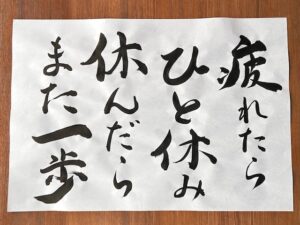 疲れたら
ひと休み
休んだら
また一歩